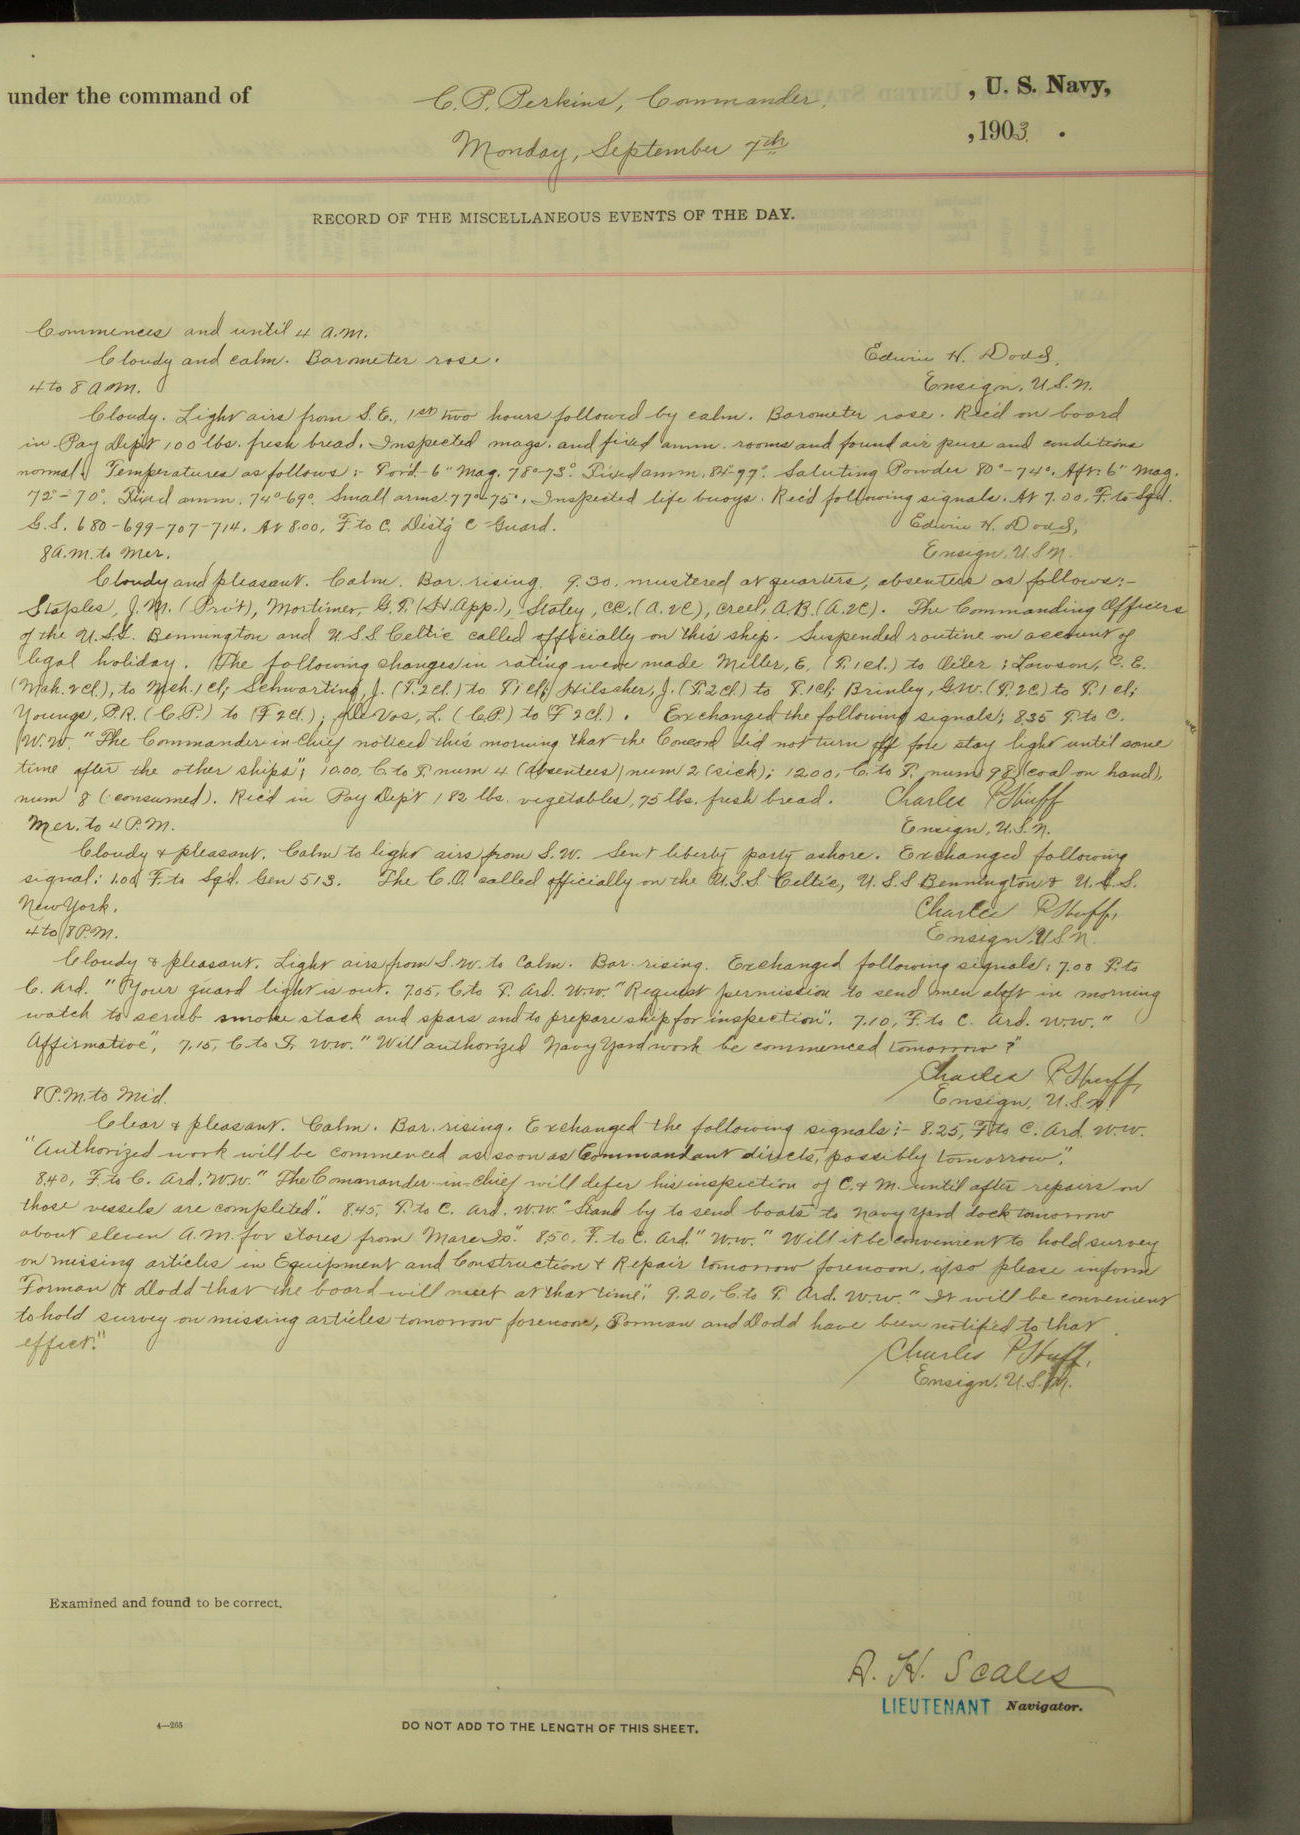 under the command of C. P. Perkins, Commander, , U. S. Navy,
Monday, September 7th , 1903 .
RECORD OF THE MISCELLANEOUS EVENTS OF THE DAY.
Commences and until 4 A.M.
Cloudy and calm. Barometer rose. Edwin H. Dodd,
4 to 8 A.M. Ensign, U.S.N.
Cloudy. Light airs from S.E., 1st two hours followed by calm. Barometer rose. Rec'd on board
in Pay Dep't 100 lbs. fresh bread. Inspected mags. and fixed amm. rooms and found air pure and conditions
normal. Temperatures as follows:- For'd 6" Mag. 78°-73°. Fixed amm. 84°-97°. Saluting Powder 80°-74°. Aft. 6" Mag.
72°-70°. Fixed amm. 74°-69°. Small arms 77°-75°. Inspected life buoys. Rec'd following signals. At 7.00, F. to Sqd.
G.S. 680-699-707-714. At 8.00, F to C. Dist'g C Guard. Edwin H. Dodd,
8 A.M. to Mer. Ensign, U.S.N.
Cloudy and pleasant. Calm. Bar. rising. 9.30, mustered at quarters, absentees as follows:-
Staples, J.M. (Priv't), Mortimer, G.F. (H.App.), Staley, CC. (A.2C), Creel, A.B. (A.2C). The Commanding Officers
of the U.S.S. Bennington and U.S.S Celtic called officially on this ship. Suspended routine on account of
legal holiday. The following changes in rating were made Miller, E. (F.1Cl.) to Oiler; Lawson, C.E.
(Mch. 2Cl), to Mch. 1Cl; Schwarting, J. (F.2Cl.) to F1Cl; Hilscher, J. (F.2Cl) to F.1Cl; Brinley, G.W. (F.2C) to F.1Cl;
Youngs, P.R. (C.P.) to (F 2Cl.); De Vos, L. (C.P.) to F 2Cl). Exchanged the following signals; 8.35 F. to C.
W.W. "The Commander-in-Chief noticed this morning that the Concord did not turn off fore stay light until some
time after the other ships"; 10.00, C. to F. num 4 (absentees) num 2 (sick); 12.00, C. to F. num 98 (coal on hand),
num 8 (consumed). Rec'd in Pay Dep't 182 lbs. vegetables, 75 lbs. fresh bread. Charles P. Huff
Mer. to 4 P.M. Ensign, U.S.N.
Cloudy & pleasant. Calm to light airs from S.W. Sent liberty party ashore. Exchanged following
signal: 1.00 F. to Sqd. Gen 513. The C.O. called officially on the U.S.S Celtic, U.S.S Bennington & U.S.S.
New York. Charles P. Huff,
4 to 8 P.M. Ensign, U.S.N.
Cloudy & pleasant. Light airs from S.W. to Calm. Bar. rising. Exchanged following signals: 7.00 F. to
C. Ard. "Your guard light is out. 7.05, C. to F. Ard. W.W. "Request permission to send men aloft in morning
watch to scrub smoke stack and spars and to prepare ship for inspection". 7.10, F. to C. Ard. W.W. "
Affirmative", 7.15, C. to F. W.W. "Will authorized Navy Yard work be commenced tomorrow?"
Charles P. Huff,
8 P.M. to Mid. Ensign, U.S.N.
Clear & pleasant. Calm. Bar. rising. Exchanged the following signals:- 8.25, F. to C. Ard. W.W.
"Authorized work will be commenced as soon as Commandant directs, possibly tomorrow".
8.40, F. to C. Ard. W.W. "The Commander-in-Chief will defer his inspection of C. & M. until after repairs on
those vessels are completed". 8.45, F. to C. Ard. W.W. "Stand by to send boats to Navy Yard dock tomorrow
about eleven A.M. for stores from Mare Is." 8.50, F. to C. Ard. "W.W. "Will it be convenient to hold survey
on missing articles in Equipment and Construction & Repair tomorrow forenoon, if so please inform
Forman & Dodd that the board will meet at that time". 9.20, C. to F. Ard. W.W. "It will be convenient
to hold survey on missing articles tomorrow forenoon, Forman and Dodd have been notified to that
effect." Charles P. Huff,
Ensign, U.S.N.
Examined and found to be correct.
A. H. Scales
LIEUTENANT Navigator.
4—265 DO NOT ADD TO THE LENGTH OF THIS SHEET.